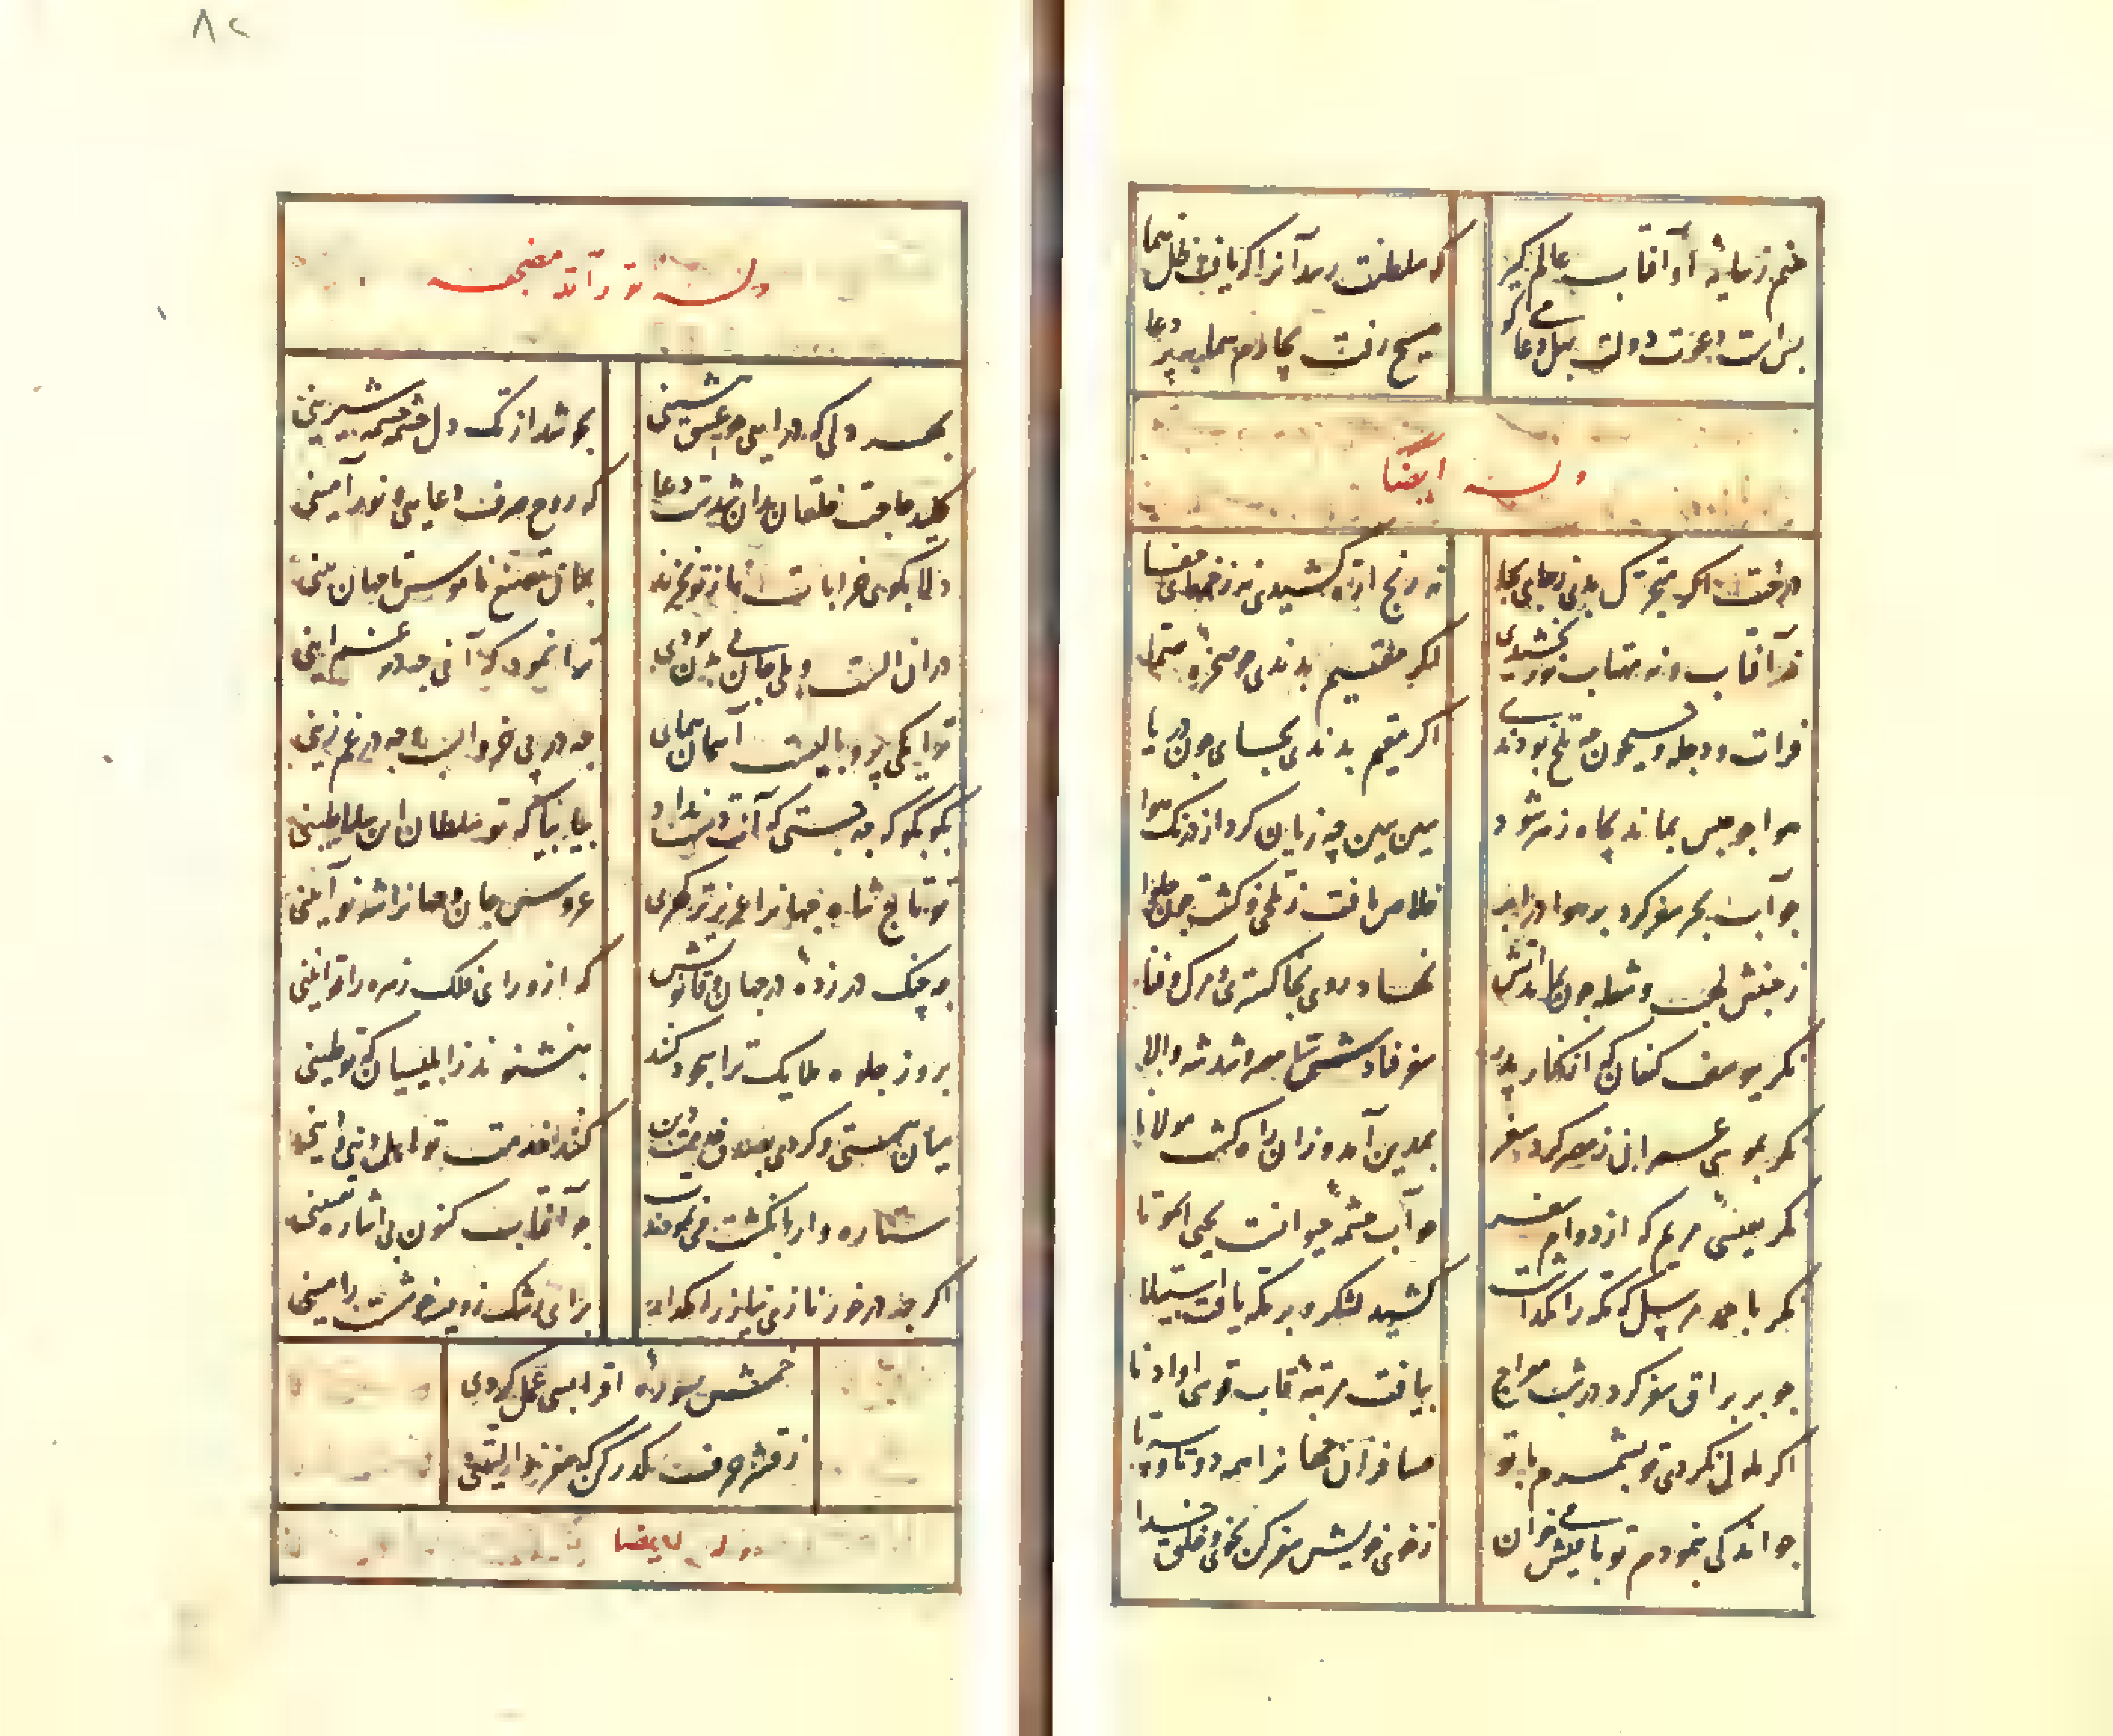 منم زمایه او آفتاب عالم گیر که سلطنت رسد آنرا که یافت ظل هما
بس است دعوت دولت بهل دعا می گو مسیح رفت بچارم سما بپر دعا
وله ایضا
درخت اگر متحرک بدی زجای بجا نه رنج اره کشیدی نه زخمهای جفا
نه آفتاب و نه مهتاب نور بخشیدی اگر مقیم بدندی چو صخره صما
فرات و دجله و جیحون چه تلخ بودندی اگر مقیم بدندی بجای چون دریا
هوا چو حبس بماند بچاه زهر شود ببین ببین چه زیان کرد از درنگ هوا
چو آب بحر سفر کرد بر هوا در ابر خلاص یافت ز تلخی و گشت چون حلوا
ز جنبش لهب و شعله چون بماند آتش نهاد روی بخاکستری و مرگ و فنا
نگر بیوسف کنعان که از کنار پدر سفر فتادش تا مصر و شد شه والا
نگر بموسی عمرانی ز مصر کرد سفر بمدین آمد و زان راه گشت مولانا
نگر بعیسی مریم که از دوام سفر چو آب چشمه حیوانست یحیی الموتا
نگر باحمد مرسل که مکه را بگذاشت کشید لشکر و بر مکه یافت استیلا
چو بر براق سفر کرد در شب معراج بیافت مرتبه قاب قوس او ادنا
اگر ملول نگردی تو بشمرم با تو مسافران جهانرا همه دوتا و سه تا
چو اندکی بنمودم تو باقیش می خوان ز خوی خویش سفر کن بخوی و خلق خدا
۸۲
وله نور الله مضجعه
بهر دلی که درایی چو عشق بنشینی بجوشد از تک دل چشمه چشمه شیرینی
کلید حاجت خلقان بدان شدست دعا که روح صرف دعایی و نور آمینی
دلا بکوی خرابات ناز تو نخرند
درآن الست و بلی جان بی بدن بودی ترا نمود که آنی چه در غم اینی
ترا یکی پر و بالیست آسمان پیمای چه در پی خر و اسب چه در غم زینی
بگو بگو که چه جستی که آنت دست نداد بیا بیا که تو سلطان این سلاطینی
تو تاج شاه جهانرا عزیزتر گهری عروس جان جهانرا شه نوآیینی
چه چنگ درزده در جهان و قانونش که از ورای فلک زهره را قوانینی
بروز جلوه ملایک ترا سجود کنند بنشنوند ز ابلیسیان که تو طینی
میان ببستی و کردی بصدق خدمت دین کنند خدمت تو بعد ازین که تو دینی
ستاره وار بانگشت می نمودند چو آفتاب کنون بی اشاره تعیینی
اگر چه درخور نازی نیاز را مگذار برای رشک ز ویسه خوشست رامینی
خمش بسوره اقرا بسی عمل کردی
ز قشر حرف گذر کن که مغز والتینی
وله ایضا